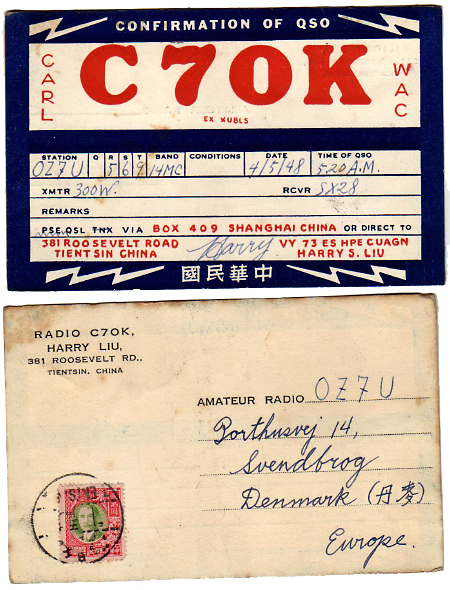 CONFIRMATION OF QSO
CARL
C7OK
WAC
EX XU8LS
STATION Q R S T BAND CONDITIONS DATE TIME OF QSO
OZ7U 5 6 9 14MC 4/5/48 5:20 A.M.
XMTR 300W. RCVR SX28
REMARKS
PSE QSL TNX VIA BOX 409 SHANGHAI CHINA OR DIRECT TO
381 ROOSEVELT ROAD Harry VY 73 ES HPE CUAGN
TIENTSIN CHINA HARRY S. LIU
國民華中
RADIO C7OK,
HARRY LIU,
381 ROOSEVELT RD.,
TIENTSIN, CHINA
AMATEUR RADIO OZ7U
Porthusvej 14,
Svendbrog
Denmark (丹麥)
Europe.